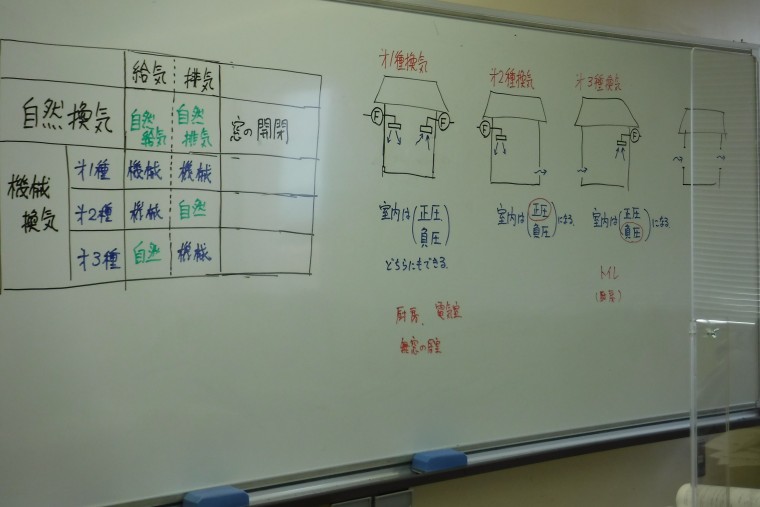 給気 排気
自然換気 自然給気 自然排気 窓の開閉
機械換気
才1種 機械 機械
才2種 機械 自然
才3種 自然 機械
才1種換気
F F
室内は(正圧
負圧)
どちらにもできる.
厨房、電気室
無窓の居室
才2種換気
F
室内は(正圧
負圧)になる
才3種換気
F
室内は(正圧
負圧)になる
トイレ
(厨房)